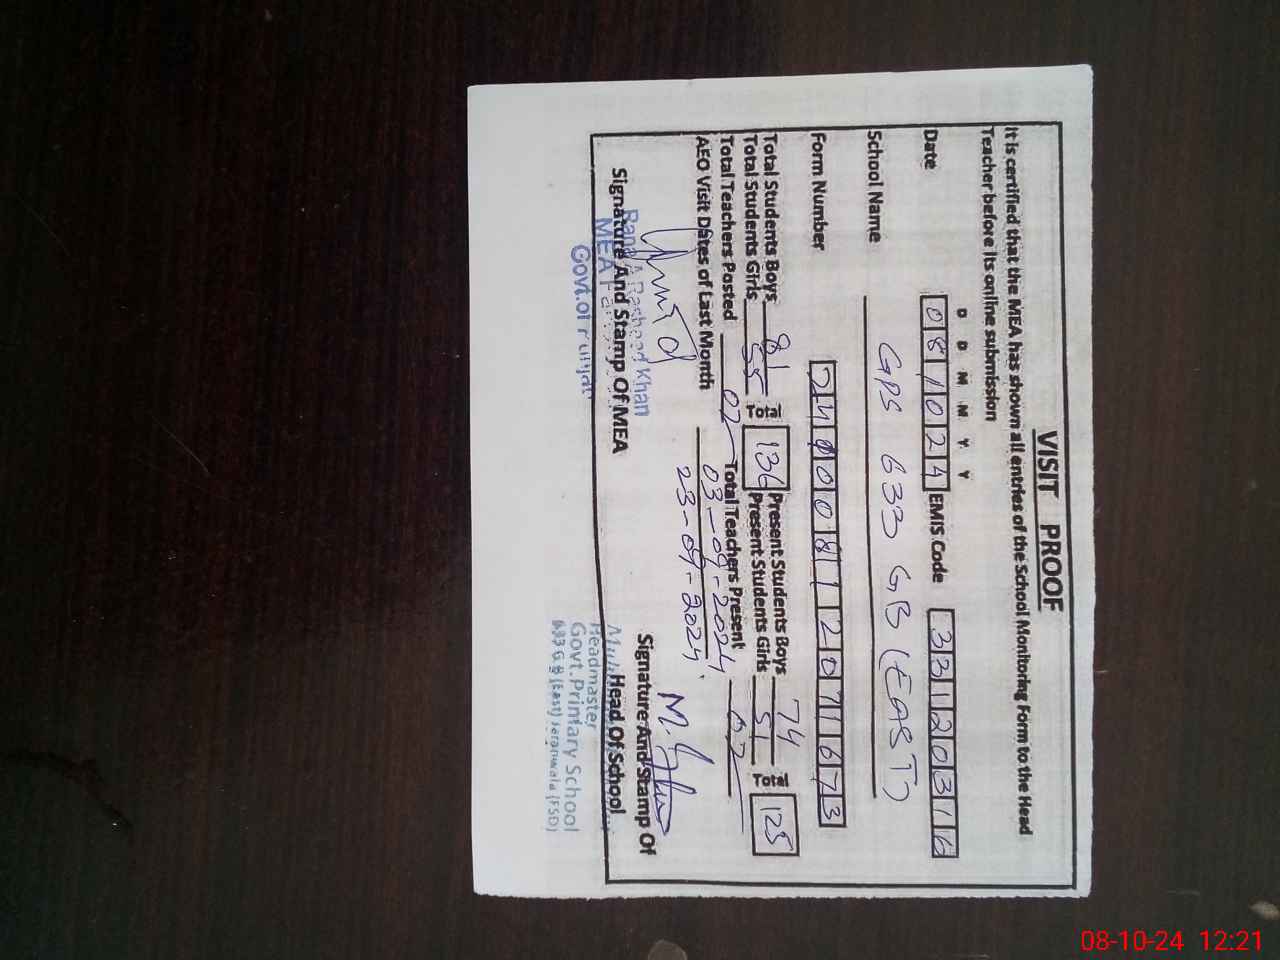 VISIT PROOF
It is certified that the MEA has shown all entries of the School Monitoring Form to the Head
Teacher before its online submission
D D M M Y Y
Date 081024 EMIS Code 33120316
School Name GPS 633 GB (EAST)
Form Number 24000812071673
Total Students Boys 81 Present Students Boys 74
Total Students Girls 55 Total 136 Present Students Girls 51 Total 125
Total Teachers Posted 02 Total Teachers Present 02
AEO Visit Dates of Last Month 03-09-2024
23-09-2024
Signature And Stamp Of MEA
Signature And Stamp Of
Head Of School
Rasheed Khan
MEA
Govt.of Punjab
Headmaster
Govt.Primary School
633 G B (East) Jaranwala (FSD)
08-10-24 12:21